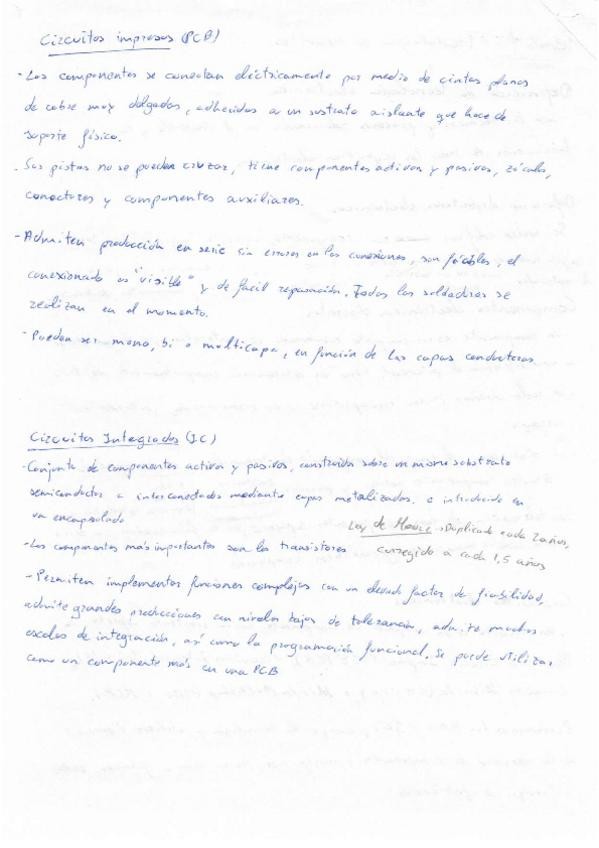 Circuitos impresos (PCB)
- Los componentes se conectan eléctricamente por medio de cintas planas
de cobre muy delgadas, adheridas a un sustrato aislante que hace de
soporte físico.
- Sus pistas no se pueden cruzar, tiene componentes activos y pasivos, zócalos,
conectores y componentes auxiliares.
- Admiten producción en serie sin errores en las conexiones, son fiables, el
conexionado es "visible" y de fácil reparación. Todas las soldaduras se
realizan en el momento.
- Pueden ser mono, bi o multicapa, en función de las capas conductoras
Circuitos Integrados (IC)
- Conjunto de componentes activos y pasivos, construidos sobre un mismo substrato
semiconductor e interconectados mediante capas metalizadas, e introducido en
un encapsulado
Ley de Moore: Duplicado cada 2 años,
corregido a cada 1,5 años
- Los componentes más importantes son los transistores
- Permiten implementar funciones complejas con un elevado factor de fiabilidad,
admite grandes producciones con niveles bajos de tolerancia, admite muchas
escalas de integración, así como la programación funcional. Se puede utilizar
como un componente más en una PCB